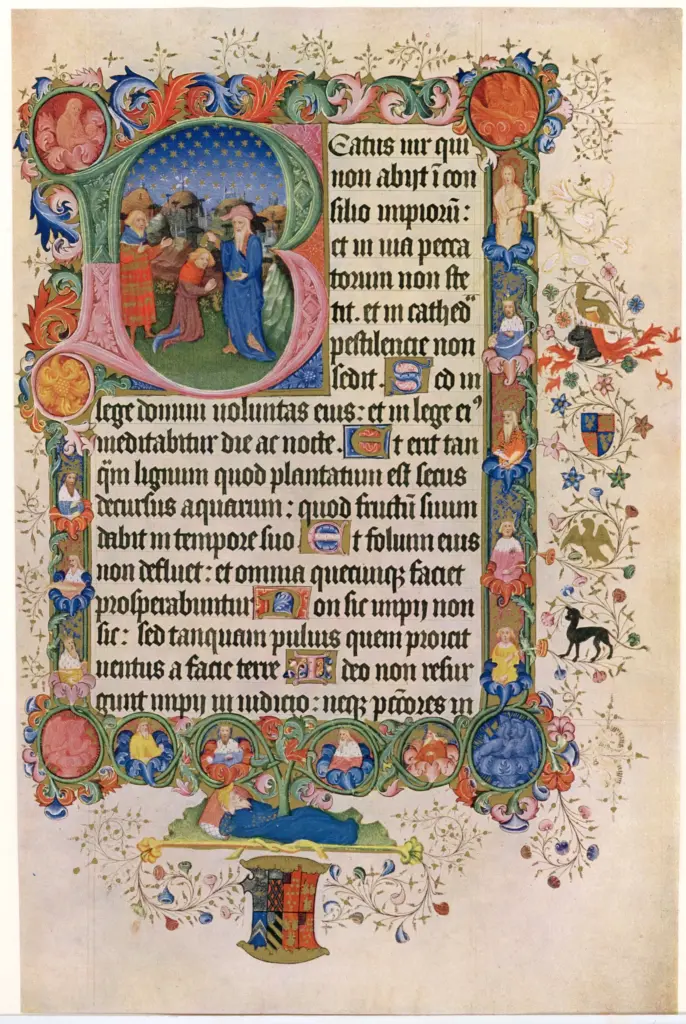 BEatus uir qui
non abijt ī con
silio impiorū:
et in uia pecca
torum non ste
tit. et in cathedᵃ
pestilencie non
sedit. Sed in
lege domini uoluntas eius: et in lege eiꝰ
meditabitur die ac nocte. Et erit tan
qm̄ lignum quod plantatum est secus
decursus aquarum: quod fructū suum
dabit in tempore suo Et folium eius
non defluet: et omnia quecunqꝫ faciet
prosperabuntur Non sic impij non
sic: sed tanquam puluis quem proicit
uentus a facie terre Ideo non resur
gunt impij in iudicio: neqꝫ pcc̄ores in